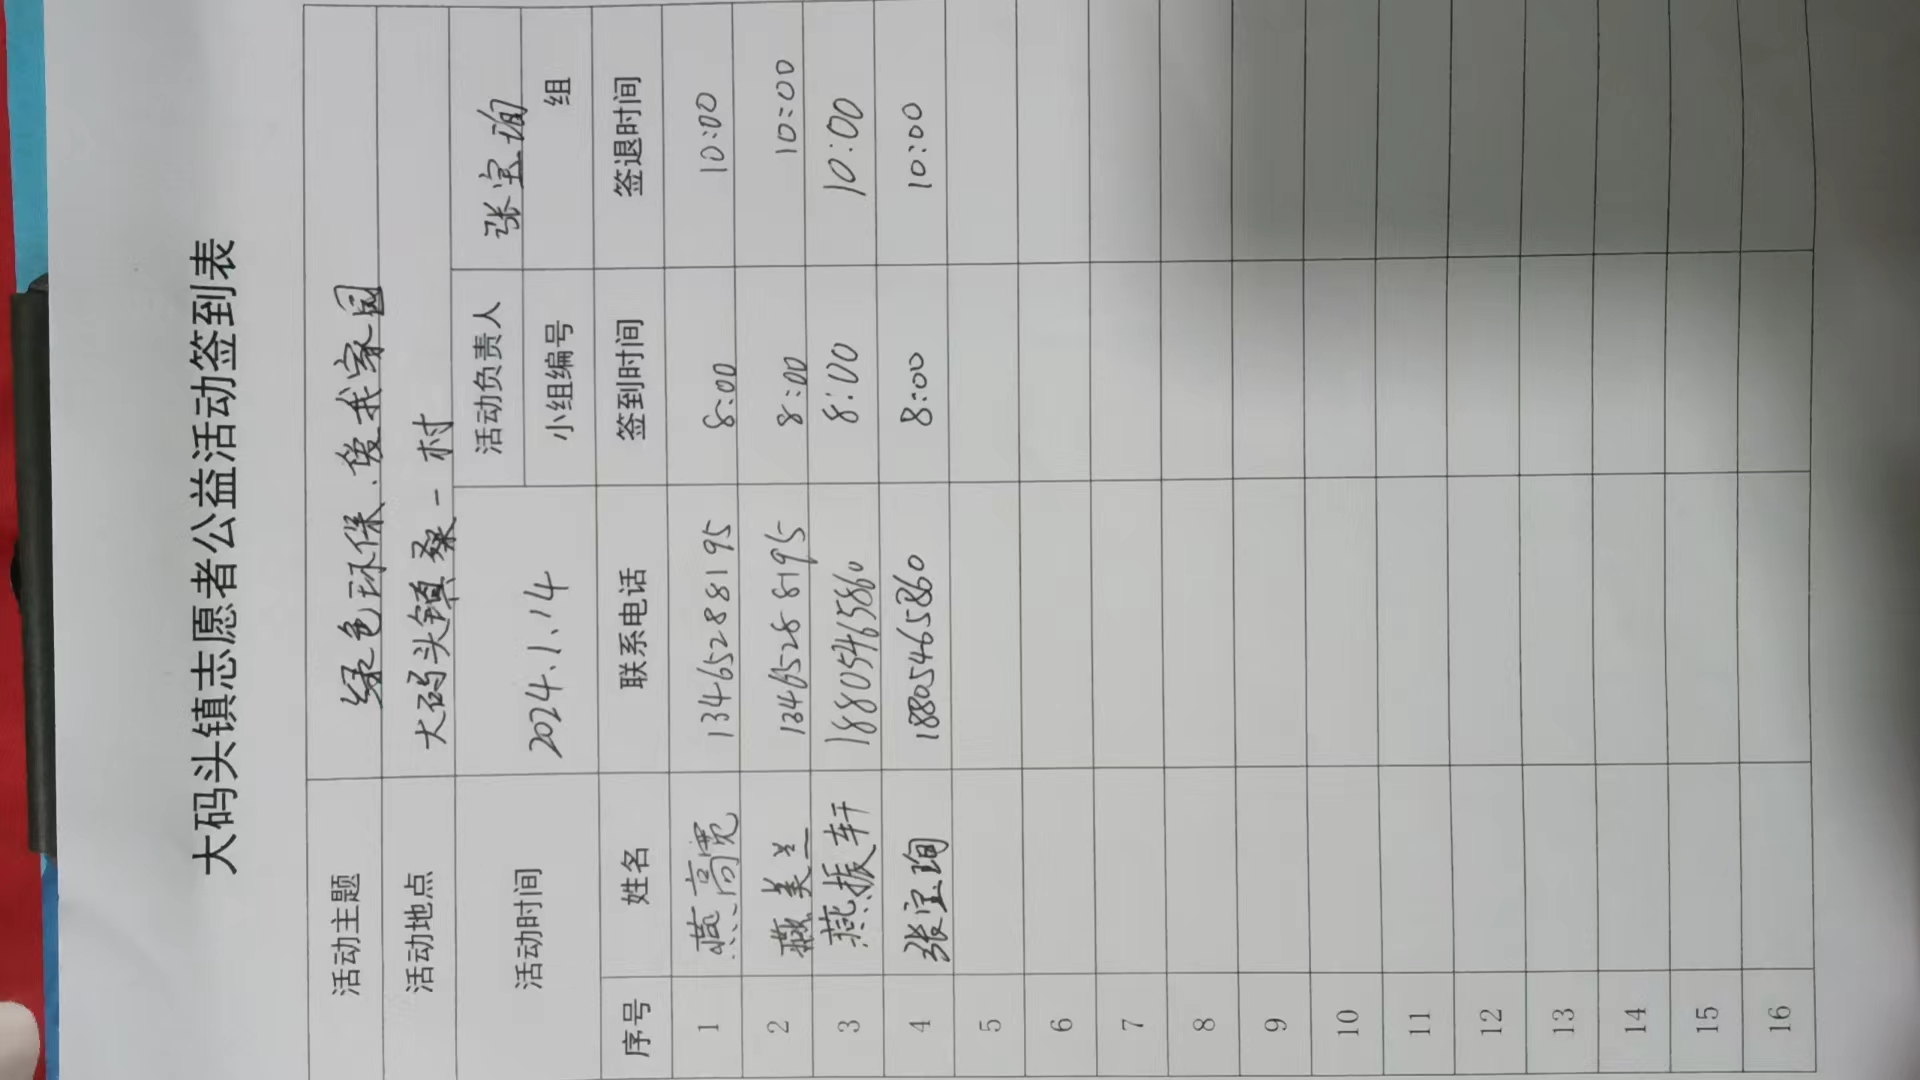 大码头镇志愿者公益活动签到表
活动主题 绿色环保、爱我家园
活动地点 大码头镇桑一村
活动时间 2024.1.14 活动负责人 张宝珣
小组编号 组
序号 姓名 联系电话 签到时间 签退时间
1 燕高宽 13465288195 8:00 10:00
2 燕美兰 13465288195 8:00 10:00
3 燕振轩 18805465860 8:00 10:00
4 张宝珣 18805465860 8:00 10:00
5
6
7
8
9
10
11
12
13
14
15
16